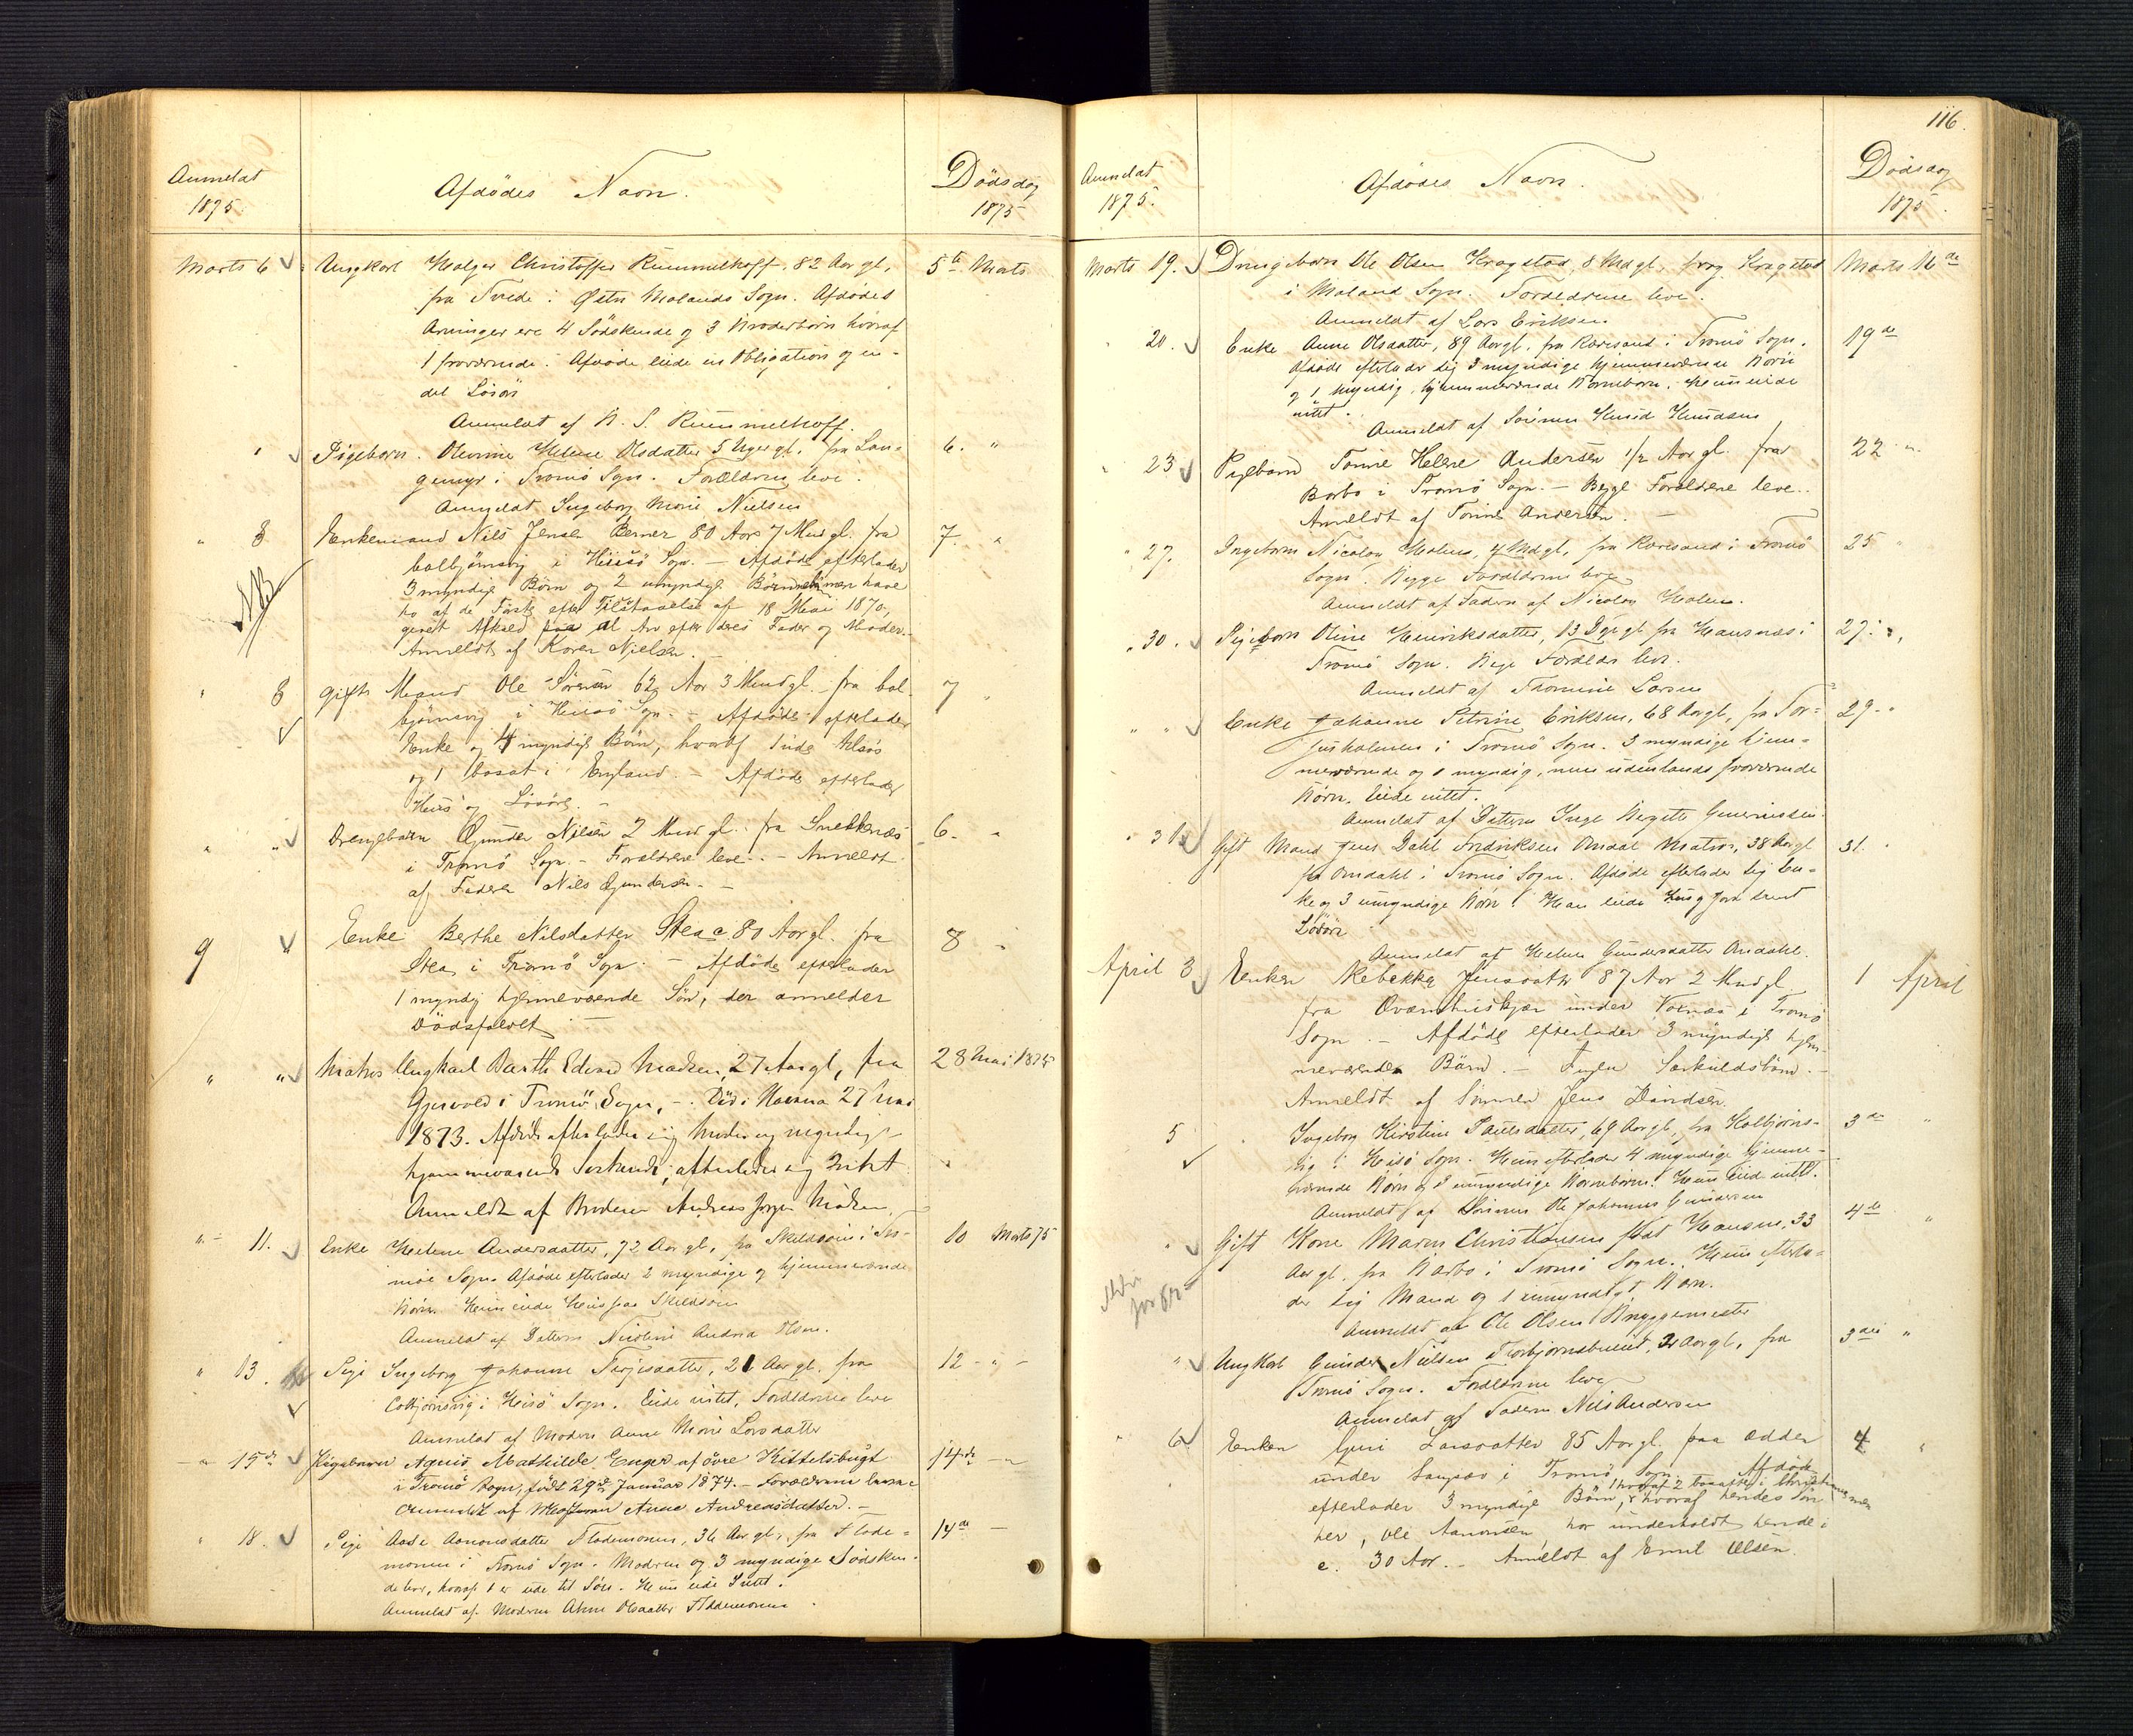 Anmeldt
1875
Afdödes Navn.
Dödsdag
1875
Marts 6 Ungkarl Holger Christoffer Rummelhoff, 82 Aar gl, 5te Marts
fra Tvede i Östre Molands Sogn. Afdödes
Arvinger ere 4 Södskende og 3 Broderbörn hvoraf
1 fraværende. Afdöde eiede en Obligation og en-
del Lösöre
Anmeldt af N. S. Rummelhoff.
" Pigebarn Olevine Helene Olsdatter 5 Uger gl. fra Lan- 6. "
gemyr i Tromö Sogn. Forældrene leve.
Anmeldt Ingeborg Marie Nielsen
" 8 Enkemand Nils Jensen Berner 80 Aar 7 Mnd gl. fra 7. "
NB
Colbjörnsvig i Hisö Sogn. – Afdöde efterlader
3 myndige Börn og 2 umyndige Börnebörn have
to af de Förste efter Tilstaaelse af 18 Mai 1870,
givet Afkald paa al Arv efter deres Fader og Moder. –
Anmeldt af Karen Nielsen. –
" 8 Gift Mand Ole Sörensen 62 Aar 3 Mnd gl. fra Col- 7 "
björnsvig i Hisö Sogn. – Afdöde efterlader
Enke og 4 myndige Börn, hvoraf 1 ude tilsös
og 1 bosat i England. – Afdöde efterlader
Huus og Lösöre. –
" " Drengebarn Gunder Nilsen 2 Mnd gl. fra Snekkenæs 6. "
i Tromö Sogn. – Forældrene leve. – Anmeldt
af Faderen Nils Gundersen. –
9 Enke Berthe Nilsdatter Stea c. 80 Aar gl. fra 8 "
Stea i Tromö Sogn. – Afdöde efterlader
1 myndig hjemmeværende Sön, der anmelder
Dödsfaldet. –
" " Matros Ungkarl Barth Edvard Madsen, 27 Aar gl, fra 28 Mai 1875
Gjervold i Tromö Sogn, – Död i Havana 27 Mai
1873. Afdöde efterlader sig Moder og myndige
hjemmeværende Söskende; efterlader sig Intet
Anmeldt af Broderen Andreas Jørgen Madsen.
" 11. Enke Helene Andersdatter, 72 Aar gl, fra Skilsöen i Tro- 10 Marts 75
möe Sogn. Afdöde efterlader 2 myndige og hjemmeværende
Börn. Hun eiede Huus paa Skilsöen
Anmeldt af Datteren Nicoline Andrea Olsen.
" 13. Pige Ingeborg Johanne Terjesdatter, 21 Aar gl. fra 12 - " -
Colbjörnsvig i Hisö Sogn. Eiede intet. Forældrene leve
Anmeldt af Moderen Anne Marie Larsdatter
" 15de Pigebarn Agnis Mathilde Enger af övre Kittelsbugt 14de "
i Tromö Sogn, född 29de Januar 1874. – Forældrene leve
Anmeldt af Anne Andreasdatter. –
" 18. Pige Aase Aanonsdatter Flademoen, 36 Aar gl, fra Flade- 14de –
moen i Tromö Sogn. Moderen og 3 myndige Södsken-
de lever, hvoraf 1 er ude til Söes. Hun eide Intet.
Anmeldt af Moderen Anne Olsdatter Flademoen.
116.
Anmeldt
1875.
Afdödes Navn.
Dödsdag
1875.
Marts 19. Drengebarn Ole Olsen Kragstad, 8 Md gl, fra Kragstad Marts 16de
i Moland Sogn. Forældrene leve.
Anmeldt af Lars Eriksen.
" 20. Enke Anne Olsdatter, 89 Aar gl. fra Revesand i Tromö Sogn. 19de
Afdöde efterlader sig 3 myndige hjemmeværende Börn
og 1 myndig hjemmeværende Barnebarn. Hun eiede
intet.
Anmeldt af Sönnen Knud Knudsen
" 23 Pigebarn Tomine Helene Andersen 1/2 Aar gl. fra 22 "
Barbo i Tromö Sogn. – Begge Forældrene leve. –
Anmeldt af Tomine Andersen. –
" 27. Nicolay Holm, 4 Md gl, fra Revesand i Tromö 25 "
Sogn. Begge Forældrene leve
Anmeldt af Faderen af Nicolay Holm.
" 30. Pigebarn Oline Henriksdatter, 13 Dge gl fra Hansnæs i 27. "
Tromö Sogn. Bege Forældre leve.
Anmeldt af Tomine Larsen
" " Enke Johanne Petrine Eriksen, 68 Aar gl, fra Tor- 29. "
jusholmen i Tromö Sogn. 3 myndige hjem-
meværende og 1 myndig, men udenlands fraværende
Börn. Eiede intet.
Anmeldt af Datteren Inge Birgitte Gunerius​sen.
" 31 Gift Mand Jens Dahl Fredriksen Omdal Matros, 38 Aar gl 31. "
fra Omdahl i Tromö Sogn. Afdöde efterlader sig En-
ke og 3 umyndige Börn. Han eiede Hus og Jord samt
Lösöre
Anmeldt af Helene Gundersdatter Omdahl.
April 3 Enken Rebekka Jensdatter 87 Aar 2 Mnd gl. 1 April
fra Qværnhuskjær under Vornæs i Tromö
Sogn. – Afdöde efterlader 3 myndige hjem-
meværende Börn. – Ingen Særkuldsbörn. –
Anmeldt af Sönnen Jens Davidsen.
5 Ingeborg Kirstine Paulsdatter, 69 Aar gl, fra Kolbjörns- 3de "
vig i Hisö Sogn. Hun efterlader 4 myndige hjemme-
værende Börn og 3 umyndige Börnebörn. Hun eied intet.
Anmeldt af Sönnen Ole Johannes Gundersen
" Gift Kone Maren Christiansen född Hansen, 33 4de "
Aar gl. fra Barbo i Tromö Sogn. Hun efterla-
der sig Mand og 1 umyndigt Barn.
Anmeldt af Ole Olsen Bryggemester
" Ungkarl Gunder Nielsen Torbjörnsbuet, 21 Aar gl, fra 3die "
Tromö Sogn. Forældrene leve
Anmeldt af Faderen Nils Andersen
" 6 Enken Guri Larsdatter 85 Aar gl. paa Odden 4 "
under Sogn i Tromö Sogn. Afdöde
efterlader 3 myndige Börn, hvoraf 2 bosatte i Christiania, hvoraf hendes Sön
her, Ole Aanonsen har underholdt hende i
c. 30 Aar. – Anmeldt af Emil Olsen.